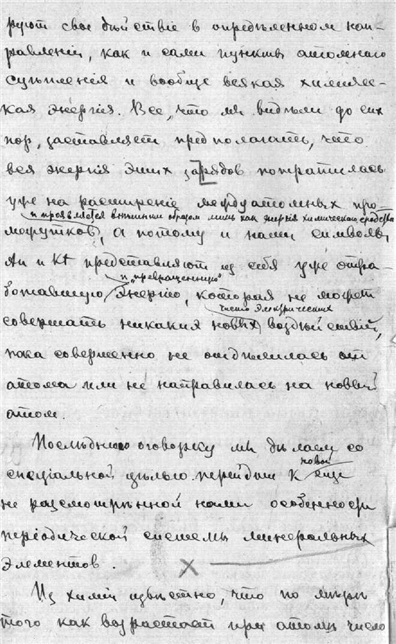 руют свое дѣйствіе в опредѣленном нап-
равленіи, как и сами пункты атомнаго
сцѣпленія и вообще всякая химичес-
кая энергія. Все, что мы видѣли до сих
пор, заставляет предполагать, что
вся энергія этих зарядов потратилась
уже на расширеніе междуатомных про-
и проявляется внѣшним образом лишь как энергія химическаго сродства
межутков, а потому и наши символы
Ан и Kt представляют из себя уже отра-
и „превращенную“
ботавшую энергію, которая не может
чисто электрических
совершать никаких новых воздѣйствій,
пока совершенно не отдѣлилась от
атома или не направилась на новый
атом.
Послѣднюю оговорку мы дѣлаем со
спеціальной цѣлью перейти к еще
новой
не разсмотрѣнной нами особенности
періодической системы минеральных
элементов.
Из химіи извѣстно, что по мѣрѣ
того как возрастает при атомѣ число